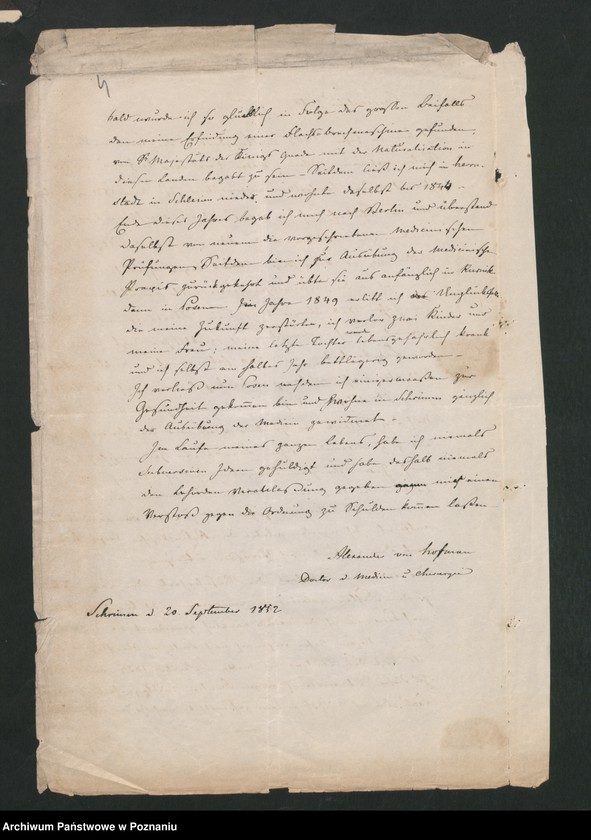 4
bald wurde ich so glücklich in Folge des grossen Beifalls
den meine Erfindung einer Flachsbrechmaschine gefunden,
von Sr Majestäts des Königs Gnade mit der Naturalisation in
diesen Landen begabt zu sein – Seitdem ließ ich mich in Herrn-
stadt in Schlesien nieder, und wohnte daselbst bis 1844 –
Ende dieses Jahres begab ich mich nach Berlin und überstand
daselbst von neuem die vorgeschriebenen Medicinischen
Prüfungen. Seitdem bin ich zur Ausübung der Medicinische
Praxis zurückgekehrt und übte sie aus anfänglich in Kurnik
dann in Posen Im Jahre 1849 erlitt ich Unglücksfälle
die meine Zukunft zerstörten, ich verlor zwei Kinder und
meine Frau; meine letzte Tochter wurde lebensgefährlich krank
und ich selbst ein halbes Jahr bettlägerig geworden –
Ich verließ nun Posen nachdem ich einigermaaßen zur
Gesundheit gekommen bin und wohne in Schrimm gänzlich
der Ausübung der Medicin gewidmet –
Im Laufe meines ganzen Lebens, habe ich niemals
Ideen gehuldigt und habe deshalb niemals
den Behörden Veranlassung gegeben mich einen
Verstoß gegen die Ordnung zu Schulden kommen laßen
Alexander von Hofman
Doctor d. Medicin u Chirurgie
Schrimm d 20 September 1852
Archiwum Państwowe w Poznaniu